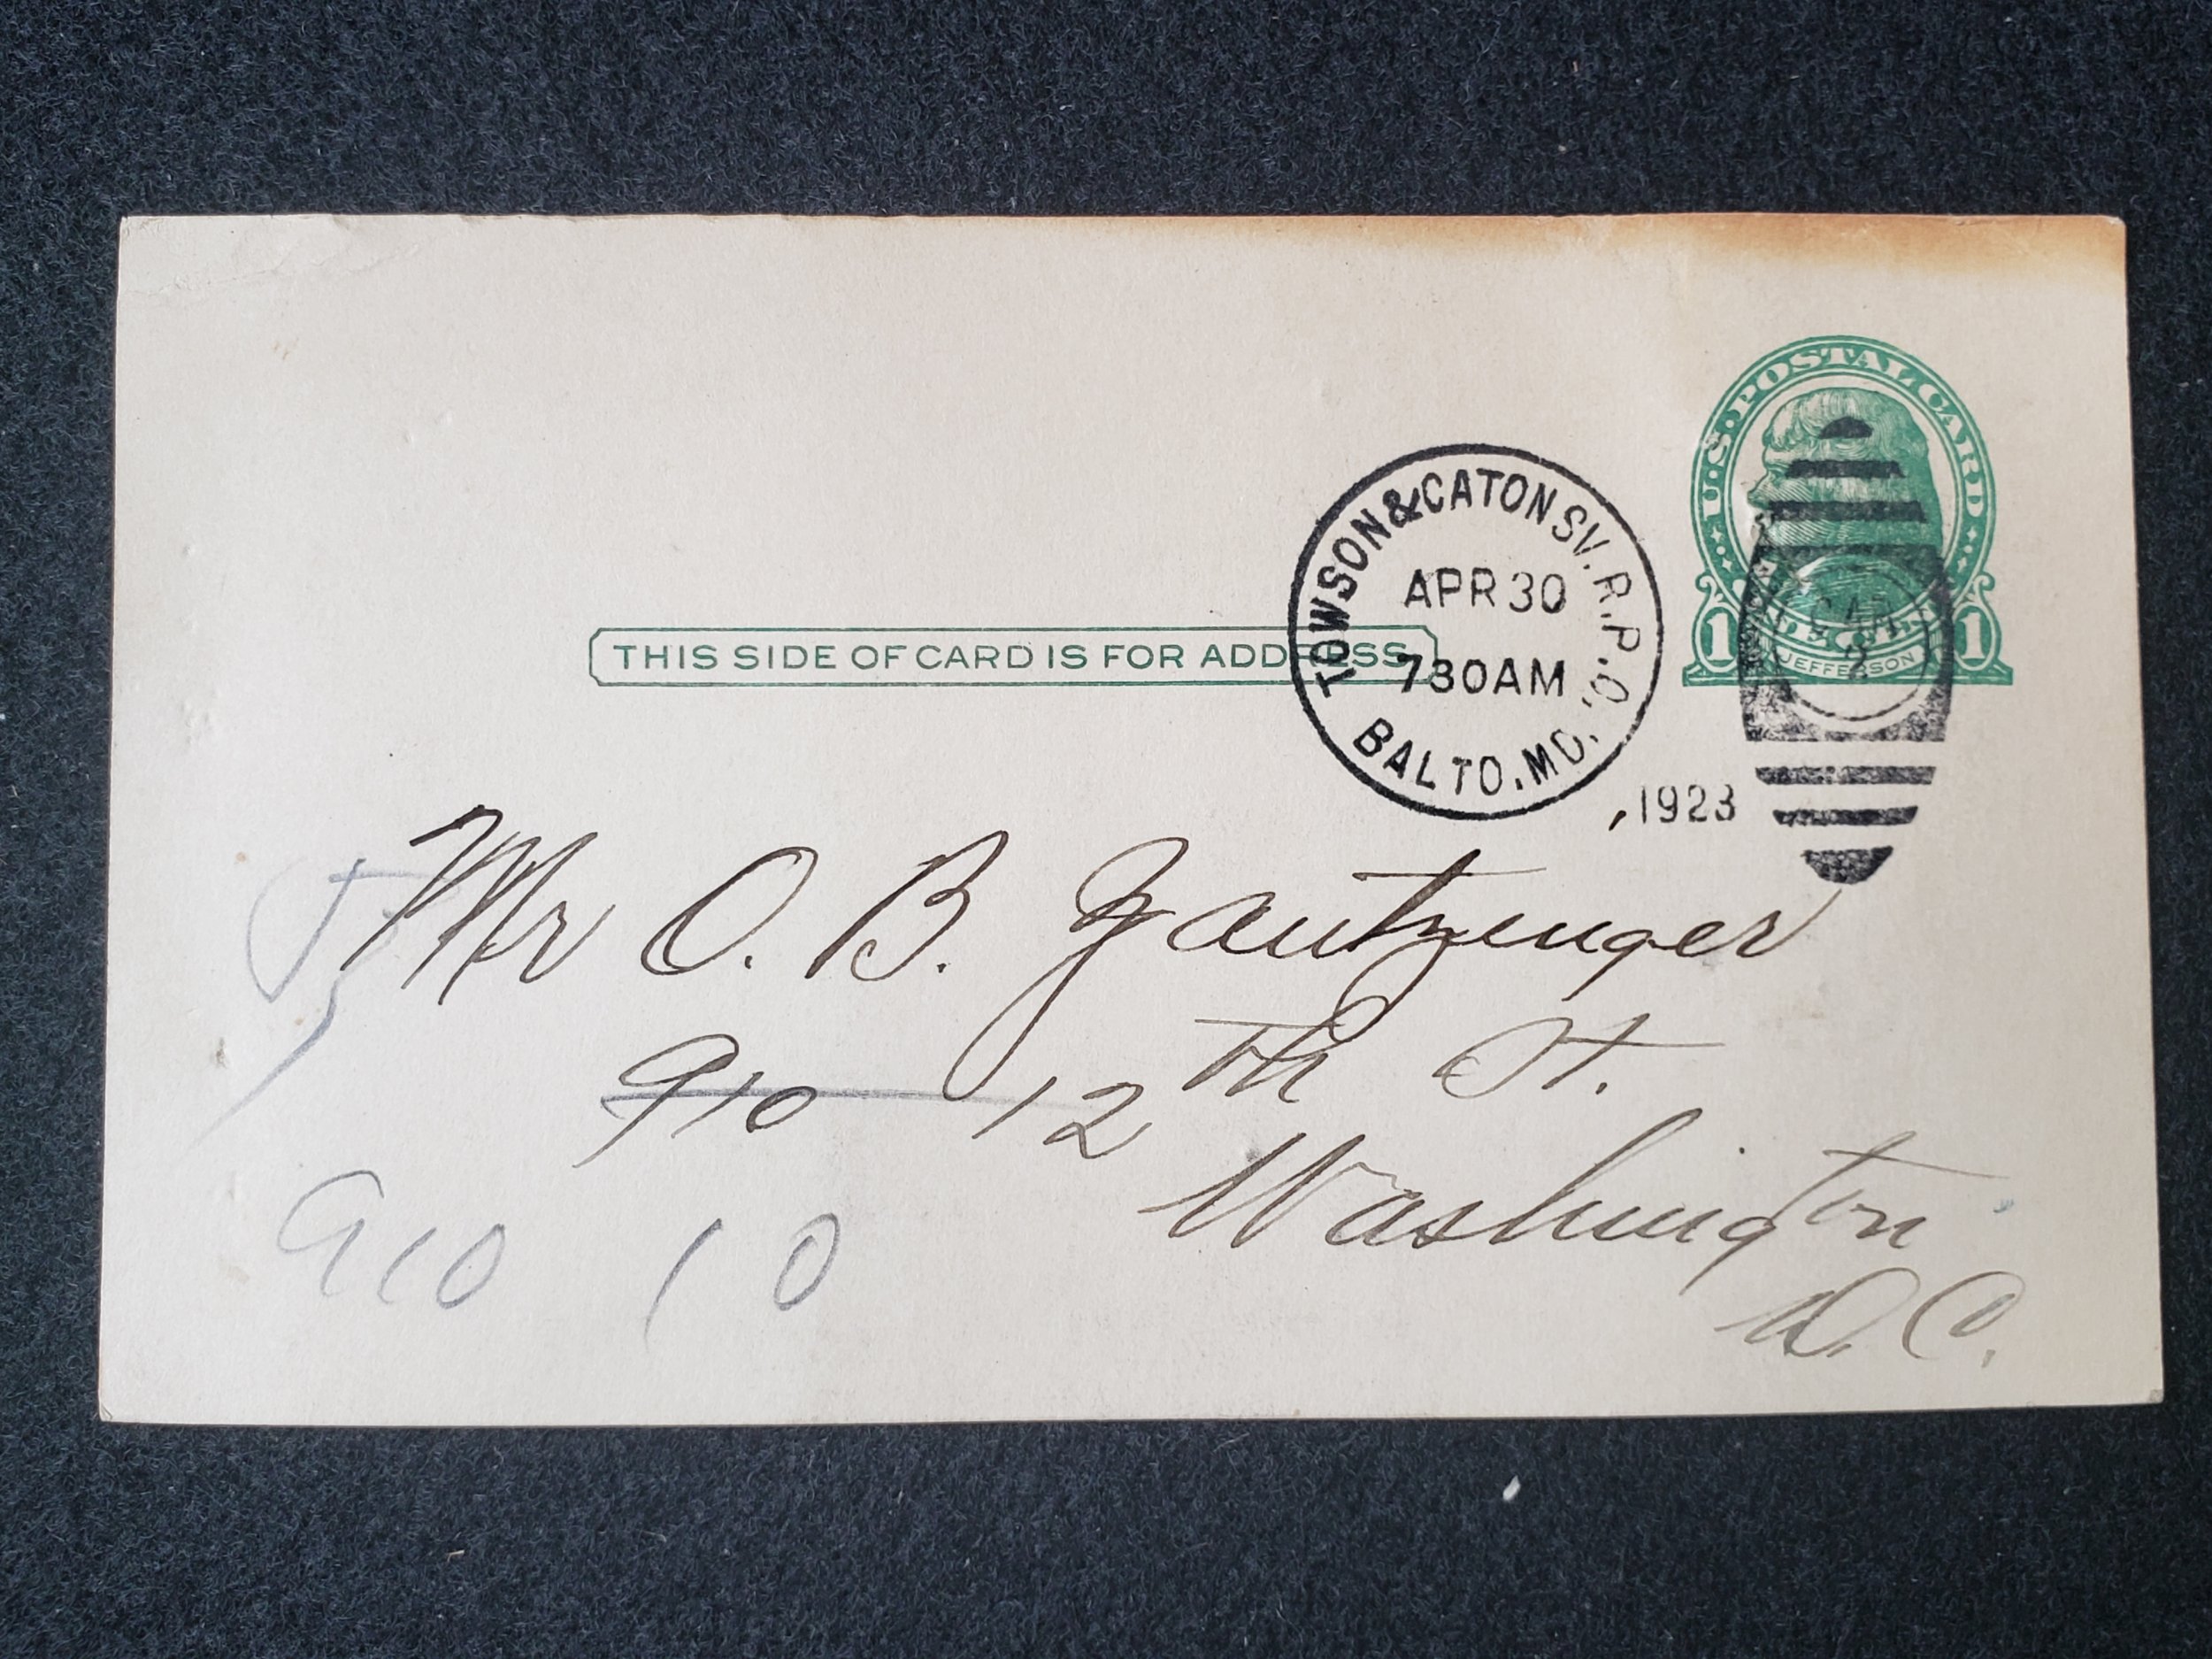 U.S. POSTAL CARD
1 CENT 1
JEFFERSON
TOWSON & CATONSV. R.P.O.
APR 30
730 AM
BALTO. MD.
, 1923
CAR
2
THIS SIDE OF CARD IS FOR ADDRESS
Mr O. B. Zantzinger
910 12th St.
Washington
D. C.
910 10